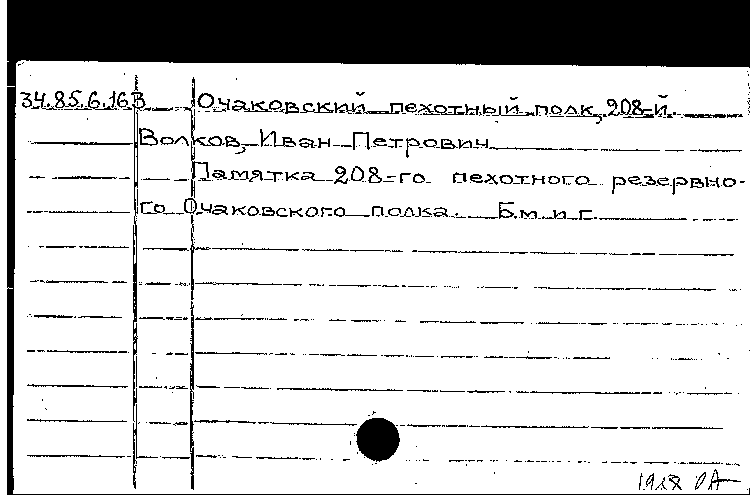 34.85.6.16В Очаковский пехотный полк, 208-й.
Волков, Иван Петрович
Памятка 208-го пехотного резервно-
го Очаковского полка. Б.м. и г.